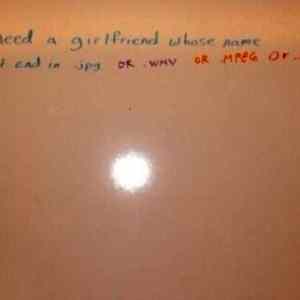 need a girlfriend whose name
t end in .jpg OR .WMV OR .MPEG Or..